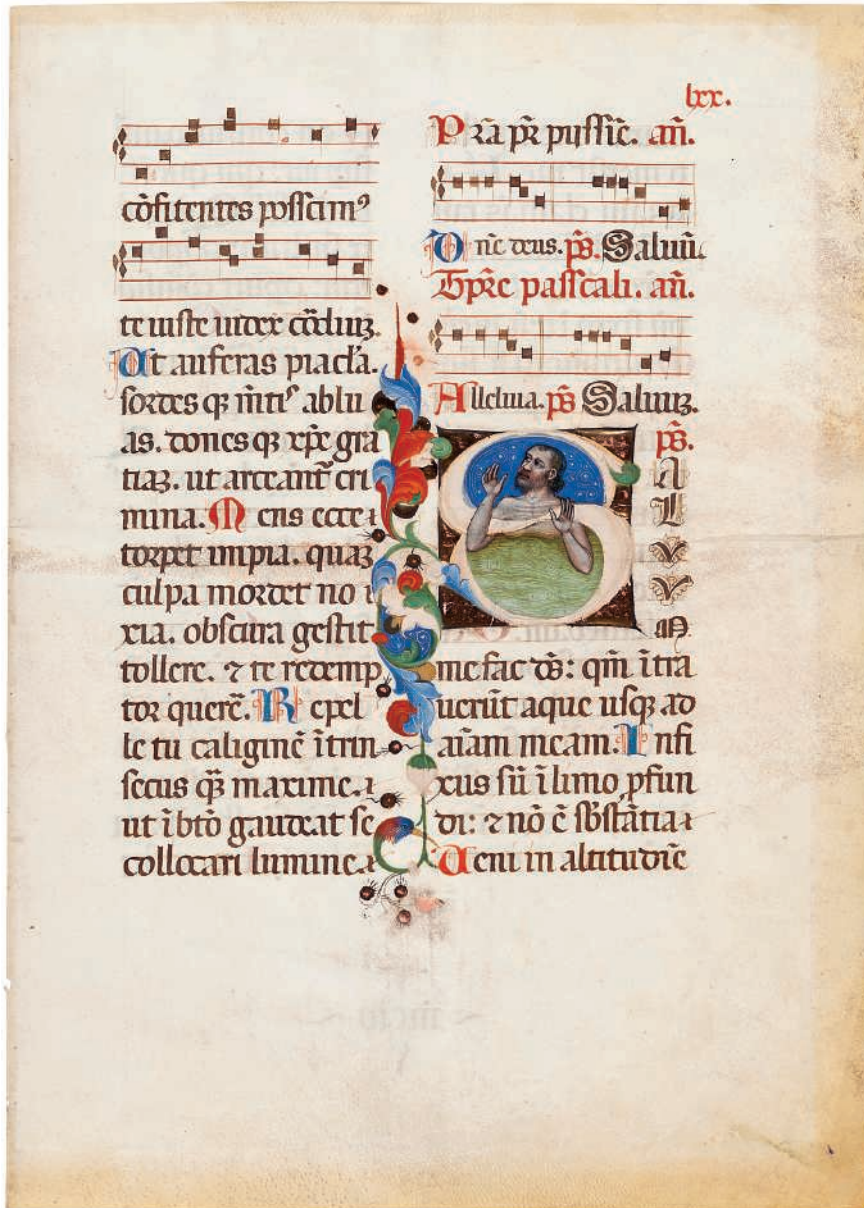 lxx.
cōfitentes possimꝰ
te iuste iudex cōdīuꝫ.
Ut auferas piacl'a.
sordes qꝫ mītis ablu
as. dones qꝫ xp̄e gra
tiaꝫ. ut arceant̄ cri
mina. Mens ecce
torpet impia. quaꝫ
culpa mordet no
xia. obscura gestit
tollere. ⁊ te redemp
tor querē. Repel
le tu caliginē ītrin
secus qꝫ maxime.
ut ī bt̄o gaudeat se
collocari lumine.
an̄.
Dn̄e deus. ps̄. Saluū.
Tp̄re pascali. an̄.
Alleluia. ps̄ Saluuꝫ.
ps̄.
SALVVM
me fac ds̄: qm̄ ītra
uerūt aque usqꝫ ad
aīam meam. Infi
xus sū ī limo ꝓfun
di: ⁊ nō ē sb̄stātia
Ueni in altitudīe